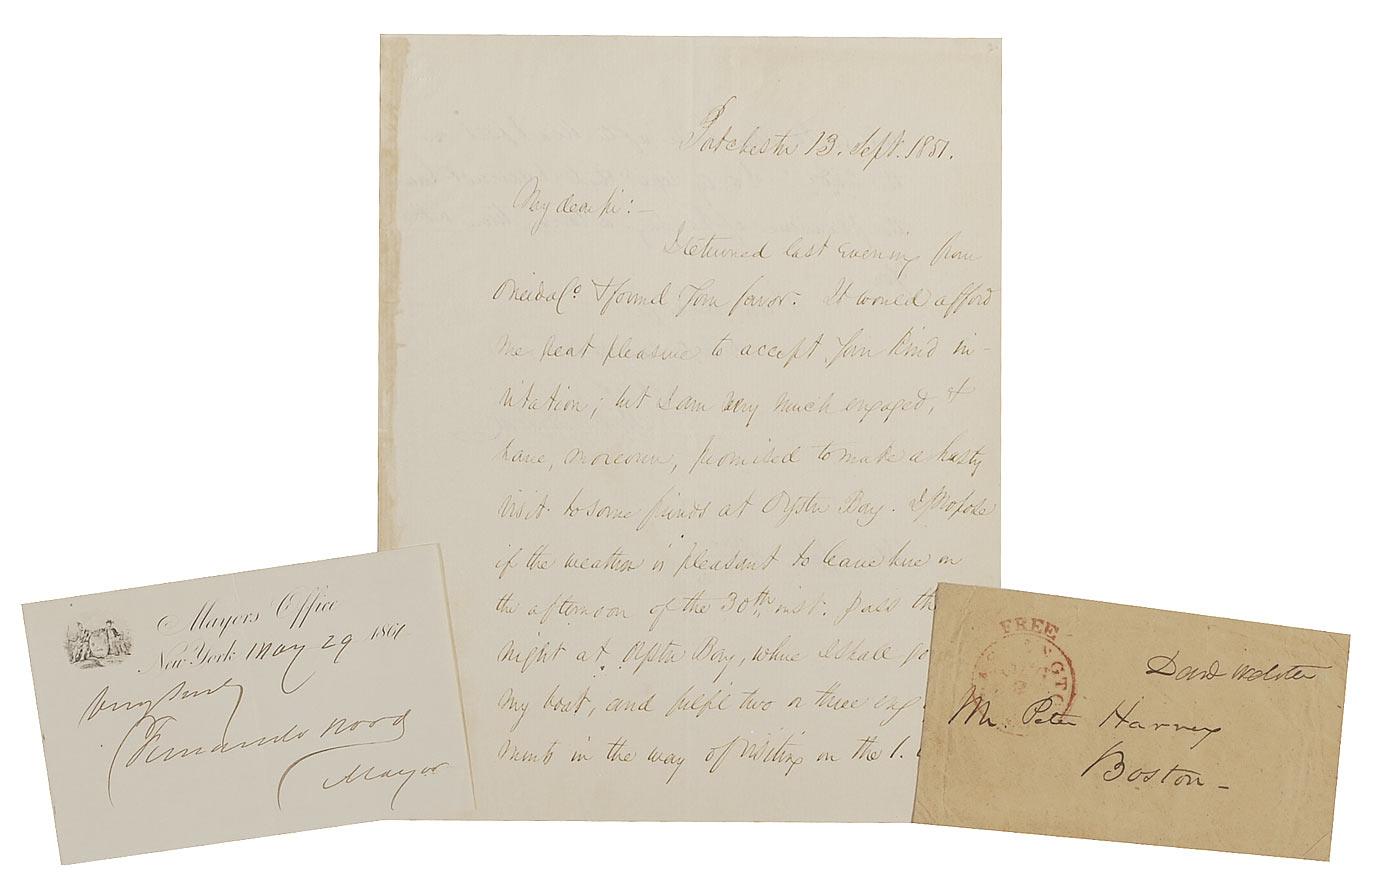 Portchester 13. Sept. 1851.
My dear Sir:—
I returned last evening from
Oneida Co. & found your favor. It would afford
me great pleasure to accept your kind in-
vitation; but I am very much engaged, &
have, moreover, promised to make a hasty
visit to some friends at Oyster Bay. I propose
if the weather is pleasant to leave here on
the afternoon of the 30th inst. pass th
night at Oyster Bay, where I shall
my boat, and fulfil two or three eng
ments in the way of visiting on the 1.
Mayor's Office
New York May 29 1861
Very truly
Fernando Wood
Mayor
FREE
Danl Webster
Mr. Peter Harvey
Boston-